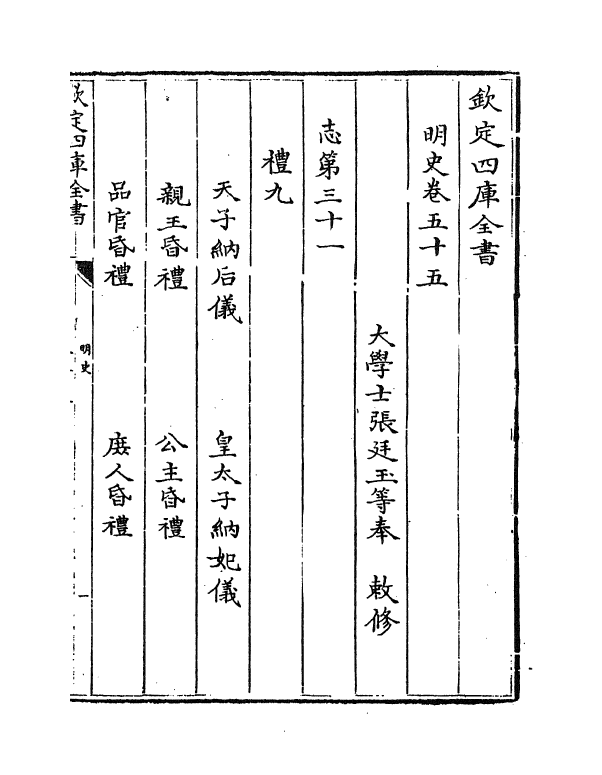 欽定四庫全書
明史卷五十五
大學士張廷玉等奉　敕修
志第三十一
禮九
天子納后儀　皇太子納妃儀
親王昏禮　公主昏禮
品官昏禮　庶人昏禮
欽定四庫全書
明史
一